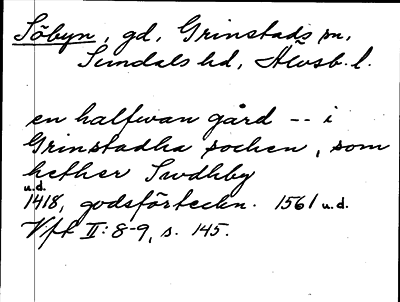 Söbyn, gd, Grinstads sn,
Sundals hd, Älvsb. l.
en halfwan gård -- i
Grinstadha sochen, som
hether Swdhby
u.d.
1418, godsförteckn. 1561 u.d.
Vft II: 8-9, s. 145.